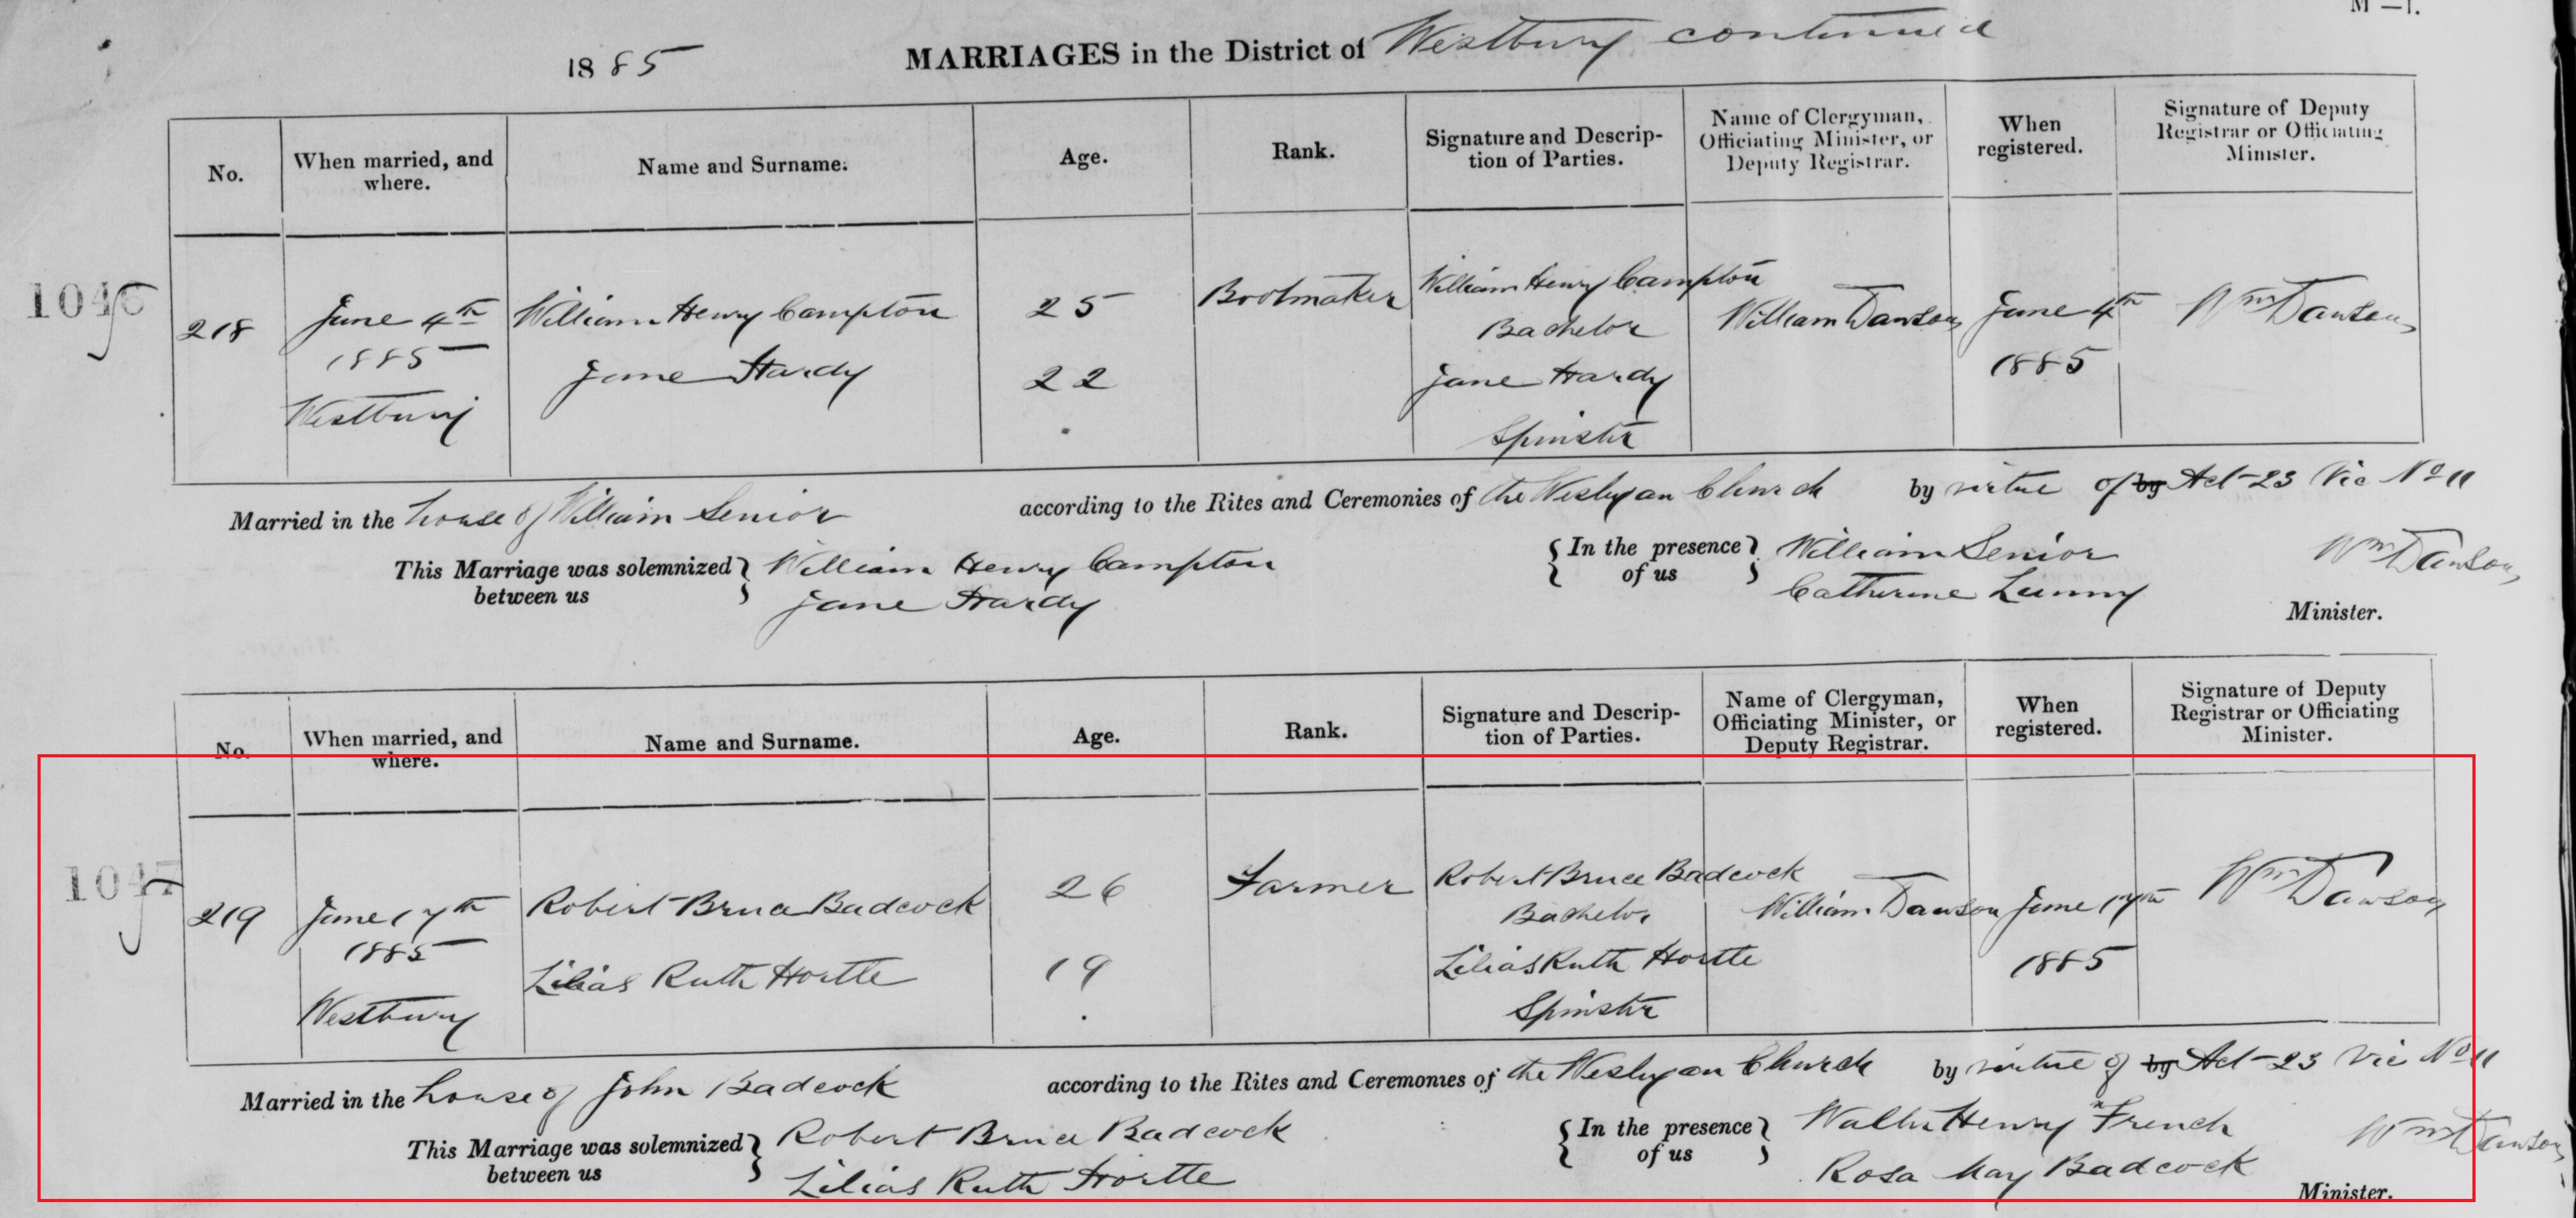 M—1.
1885 MARRIAGES in the District of Westbury continued
No. When married, and where. Name and Surname. Age. Rank. Signature and Description of Parties. Name of Clergyman, Officiating Minister, or Deputy Registrar. When registered. Signature of Deputy Registrar or Officiating Minister.
1046
218 June 4th William Henry Campton 25 Bootmaker William Henry Campton William Dawson June 4th Wm Dawson
1885 Bachelor 1885
Jane Hardy 22 Jane Hardy
Westbury Spinster
Married in the house of William Senior according to the Rites and Ceremonies of the Wesleyan Church by virtue of by Act 23 Vic No 11
This Marriage was solemnized between us } William Henry Campton { In the presence of us } William Senior Wm Dawson
Jane Hardy Catherine Lunny Minister.
No. When married, and where. Name and Surname. Age. Rank. Signature and Description of Parties. Name of Clergyman, Officiating Minister, or Deputy Registrar. When registered. Signature of Deputy Registrar or Officiating Minister.
1047
219 June 17th Robert Bruce Badcock 26 Farmer Robert Bruce Badcock William Dawson June 17th Wm Dawson
1885 Bachelor 1885
Lilias Ruth Hortle 19 Lilias Ruth Hortle
Westbury Spinster
Married in the house of John Badcock according to the Rites and Ceremonies of the Wesleyan Church by virtue of by Act 23 Vic No 11
This Marriage was solemnized between us } Robert Bruce Badcock { In the presence of us } Walter Henry French Wm Dawson
Lilias Ruth Hortle Rosa May Badcock Minister.